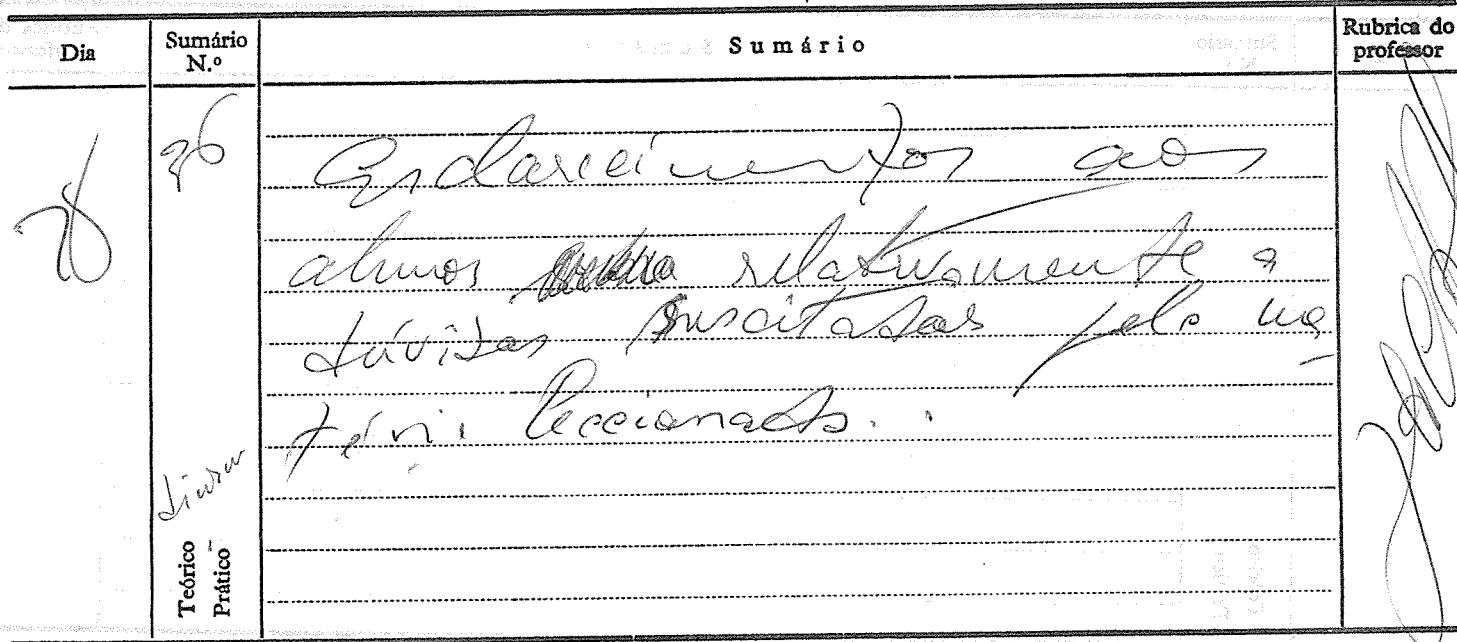 Dia
Sumário N.º
Sumário
Rubrica do professor
26
Esclarecimentos aos
alunos relativamente a
dúvidas suscitadas pela ma
téria leccionada.
Teórico
Prático